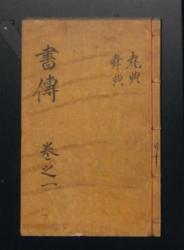 書傳 卷之一
堯典
舜典